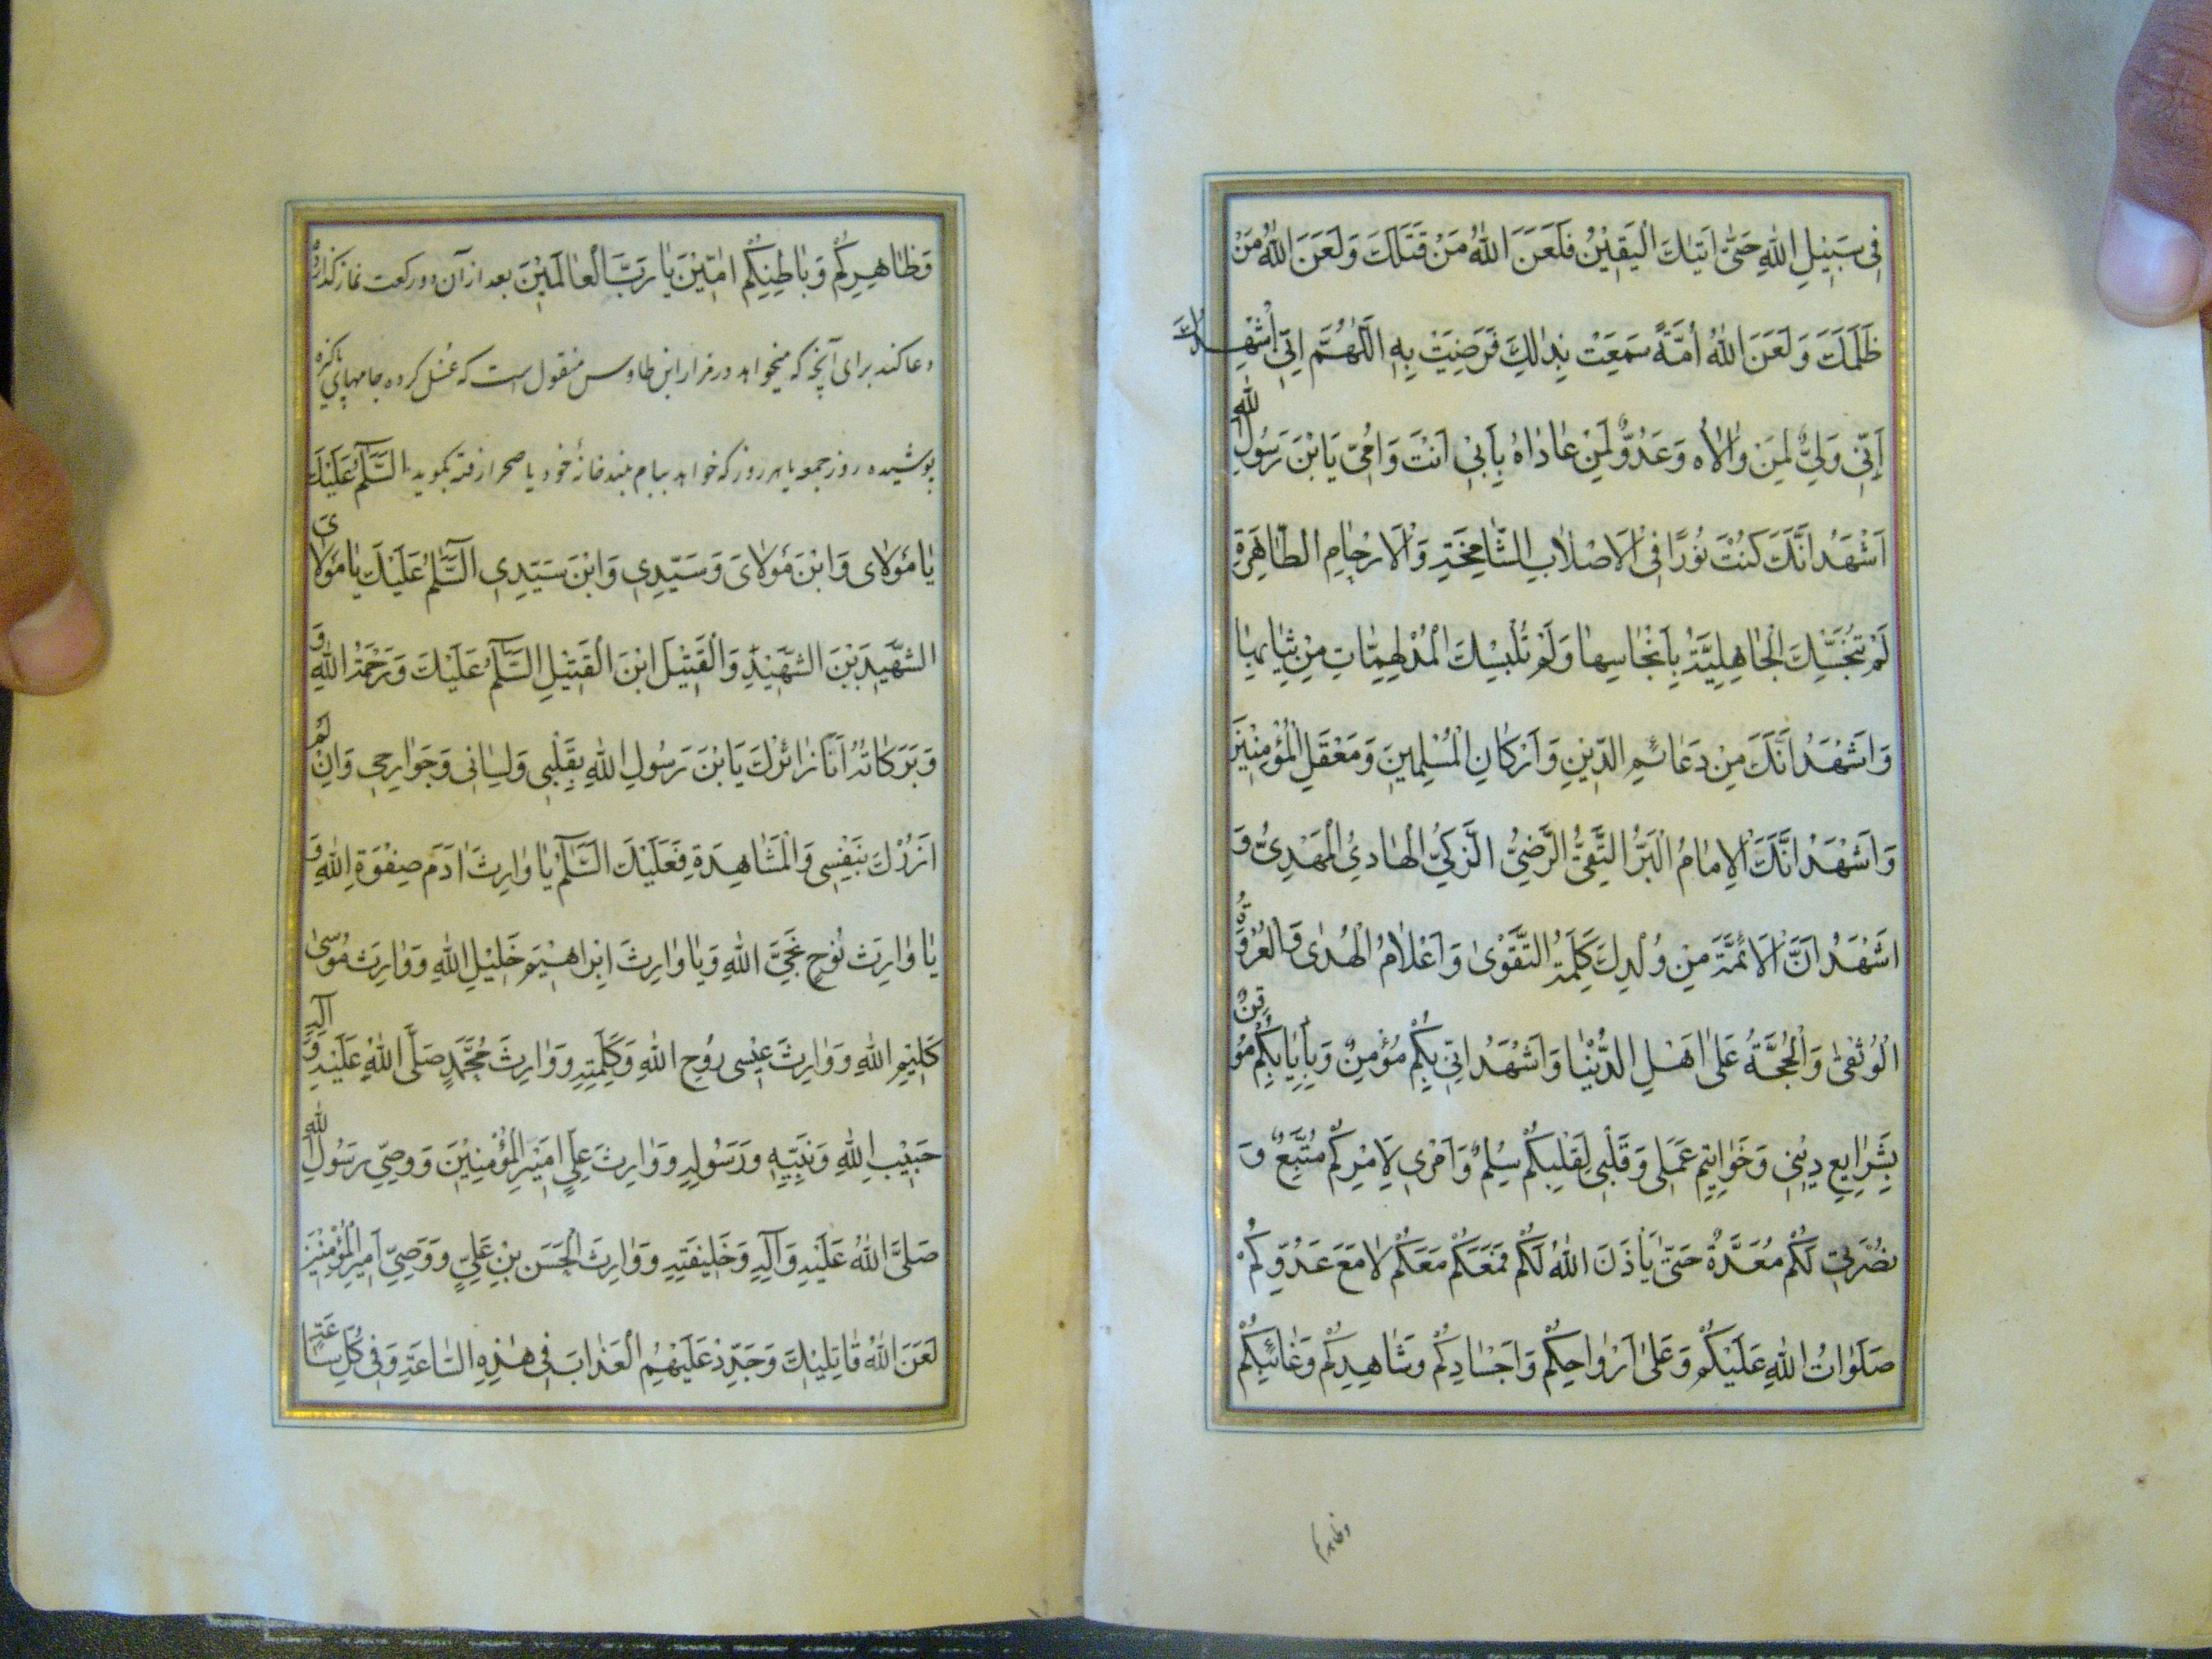 فِي سَبِيلِ اللهِ حَتّٰى اَتٰيكَ الْيَقِيْنُ فَلَعَنَ اللهُ مَنْ قَتَلَكَ وَلَعَنَ اللهُ مَنْ
ظَلَمَكَ وَلَعَنَ اللهُ اُمَّةً سَمِعَتْ بِذٰلِكَ فَرَضِيَتْ بِهِ اَللّٰهُمَّ اِنِّي اُشْهِدُكَ
اَنِّي وَلِيٌّ لِمَنْ وَالاٰهُ وَعَدُوٌّ لِمَنْ عَادَاهُ بِاَبِي اَنْتَ وَاُمِّي يَابْنَ رَسُولِ اللهِ
اَشْهَدُ اَنَّكَ كُنْتَ نُورًا فِي الْاَصْلَابِ الشَّامِخَةِ وَالْاَرْحَامِ الطَّاهِرَةِ
لَمْ تُنَجِّسْكَ الْجَاهِلِيَّةُ بِاَنْجَاسِهَا وَلَمْ تُلْبِسْكَ الْمُدْلَهِمَّاتِ مِنْ ثِيَابِهَا
وَاَشْهَدُ اَنَّكَ مِنْ دَعَائِمِ الدِّينِ وَاَرْكَانِ الْمُسْلِمِينَ وَمَعْقَلِ الْمُؤْمِنِيْنَ
وَاَشْهَدُ اَنَّكَ الْاِمَامُ الْبَرُّ التَّقِيُّ الرَّضِيُّ الزَّكِيُّ الْهَادِيُ الْمَهْدِيُّ وَ
اَشْهَدُ اَنَّ الْاَئِمَّةَ مِنْ وُلْدِكَ كَلِمَةُ التَّقْوٰى وَاَعْلَامُ الْهُدٰى وَالْعُرْوَةُ
الْوُثْقٰى وَالْحُجَّةُ عَلٰى اَهْلِ الدُّنْيَا وَاَشْهَدُ اَنِّي بِكُمْ مُؤْمِنٌ وَبِاِيَابِكُمْ مُوقِنٌ
بِشَرَايِعِ دِيْنِي وَخَوَاتِيمِ عَمَلِي وَقَلْبِي لِقَلْبِكُمْ سِلْمٌ وَاَمْرِي لِاَمْرِكُمْ مُتَّبِعٌ وَ
نُصْرَتِي لَكُمْ مُعَدَّةٌ حَتّٰى يَأْذَنَ اللهُ لَكُمْ فَمَعَكُمْ مَعَكُمْ لَا مَعَ عَدُوِّكُمْ
صَلَوَاتُ اللهِ عَلَيْكُمْ وَعَلٰى اَرْوَاحِكُمْ وَاَجْسَادِكُمْ وَشَاهِدِكُمْ وَغَائِبِكُمْ
وظاهركم
وَظَاهِرِكُمْ وَبَاطِنِكُمْ اٰمِيْنَ يَا رَبَّ الْعَالَمِيْنَ بعد از آن دو ركعت نماز كذارد و
دعا كند براى آنچه كه ميخواهد در مزار ابن طاوس منقول است كه غسل كرده جامهاى پاكيزه
پوشيده روز جمعه يا هر روز كه خواهد ببام بلند خانۀ خود يا صحرا رفته بگويد السَّلَامُ عَلَيْكَ
يَا مَوْلَاىَ وَابْنَ مَوْلَاىَ وَسَيِّدِي وَابْنَ سَيِّدِي السَّلَامُ عَلَيْكَ يَا مَوْلَاىَ
الشَّهِيدَ بْنَ الشَّهِيْدِ وَالْقَتِيْلَ ابْنَ الْقَتِيْلِ السَّلَامُ عَلَيْكَ وَرَحْمَةُ اللهِ وَ
وَبَرَكَاتُهُ اَنَا زَائِرُكَ يَابْنَ رَسُولِ اللهِ بِقَلْبِي وَلِسَانِي وَجَوَارِحِي وَاِنْ لَمْ
اَزُرْكَ بِنَفْسِي وَالْمُشَاهَدَةِ فَعَلَيْكَ السَّلَامُ يَا وَارِثَ اٰدَمَ صِفْوَةِ اللهِ وَ
يَا وَارِثَ نُوحٍ نَجِيِّ اللهِ وَيَا وَارِثَ اِبْرَاهِيْمَ خَلِيْلِ اللهِ وَوَارِثَ مُوسٰى
كَلِيْمِ اللهِ وَوَارِثَ عِيسٰى رُوحِ اللهِ وَكَلِمَتِهِ وَوَارِثَ مُحَمَّدٍ صَلَّى اللهُ عَلَيْهِ وَآلِهِ
حَبِيْبِ اللهِ وَنَبِيِّهِ وَرَسُولِهِ وَوَارِثَ عَلِيٍّ اَمِيْرِ الْمُؤْمِنِيْنَ وَوَصِيِّ رَسُولِ اللهِ
صَلَّى اللهُ عَلَيْهِ وَآلِهِ وَخَلِيفَتِهِ وَوَارِثَ الْحَسَنِ بْنِ عَلِيٍّ وَوَصِيِّ اَمِيرِ الْمُؤْمِنِيْنَ
لَعَنَ اللهُ قَاتِلِيْكَ وَجَدِّدْ عَلَيْهِمُ الْعَذَابَ فِي هٰذِهِ السَّاعَةِ وَفِي كُلِّ سَاعَةٍ